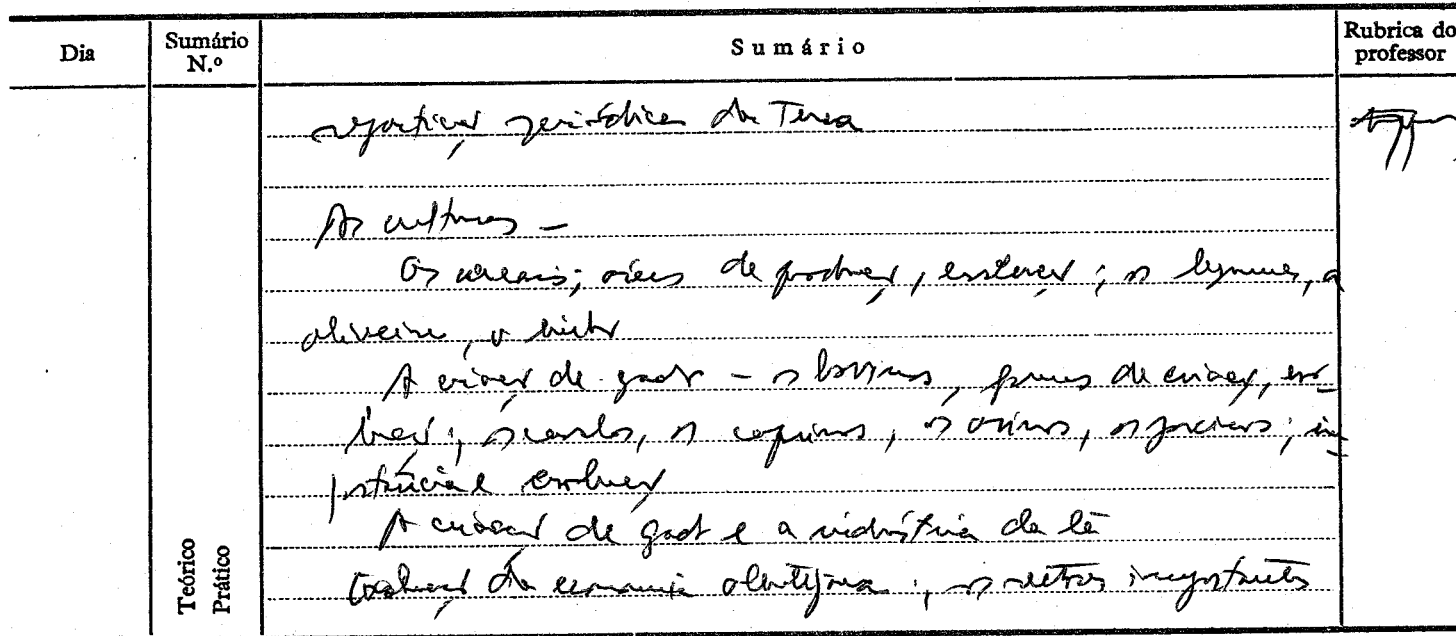 Dia
Sumário N.º
Sumário
Rubrica do professor
repartição periódica da Terra
As culturas –
Os cereais; áreas de produção, evolução; os legumes, a
oliveira, o
A criação de gado – os bovinos, formas de criação, evo-
lução; os cavalos, os caprinos, os ovinos, os porcinos; im-
portância e evolução
A criação de gado e a indústria da lã
Evolução da economia alentejana; os setores importantes
Teórico
Prático